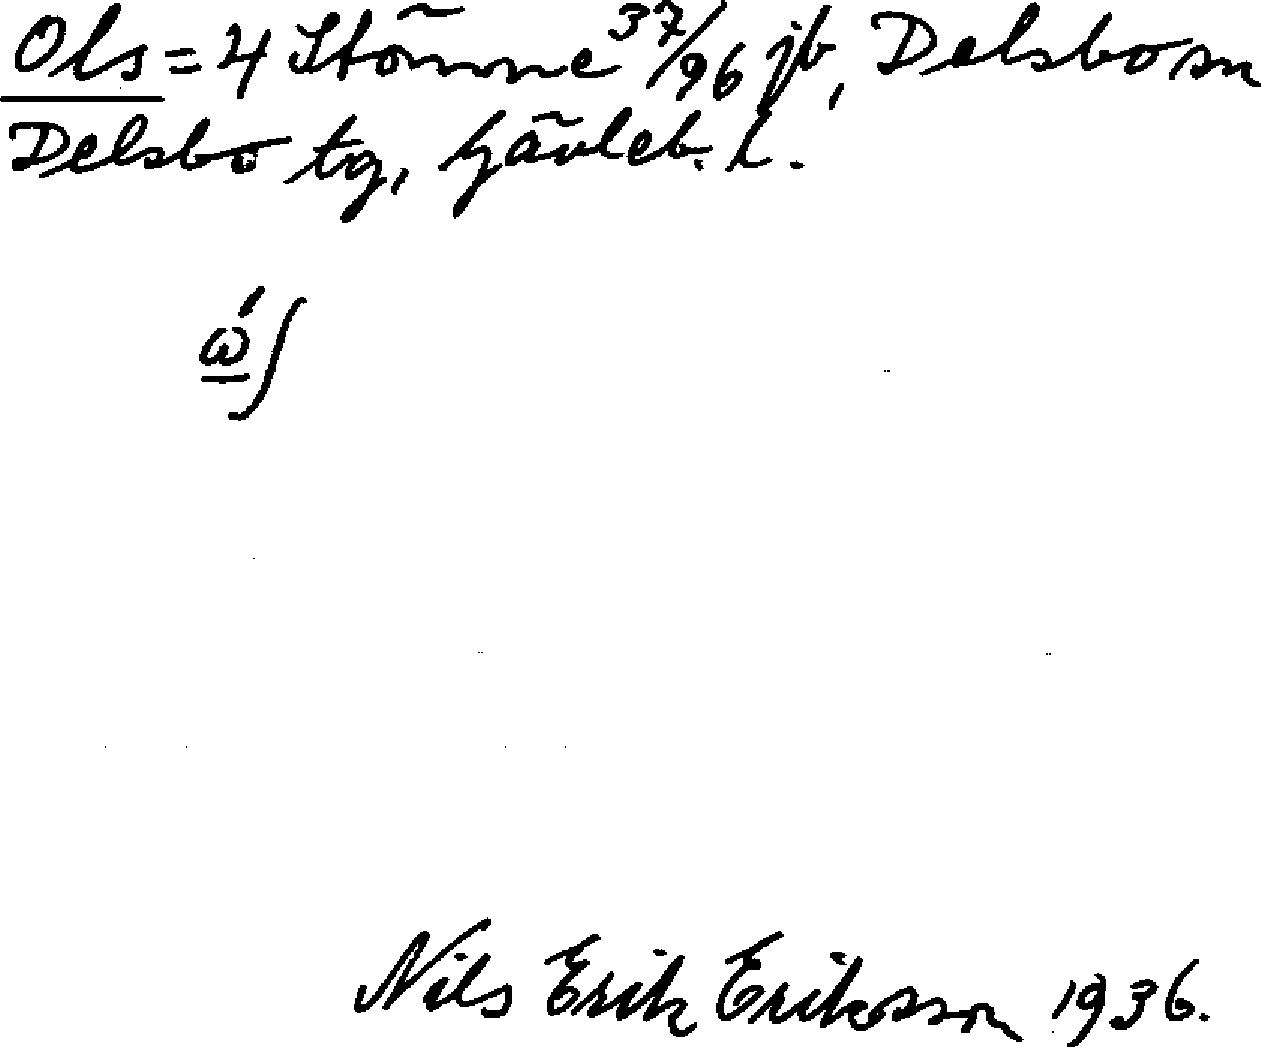 Ols = 4 Stömne 37/96 jb, Delsbo sn
Delsbo tg, Gävleb. L.
ώ̲ʃ
Nils Erik Eriksson 1936.